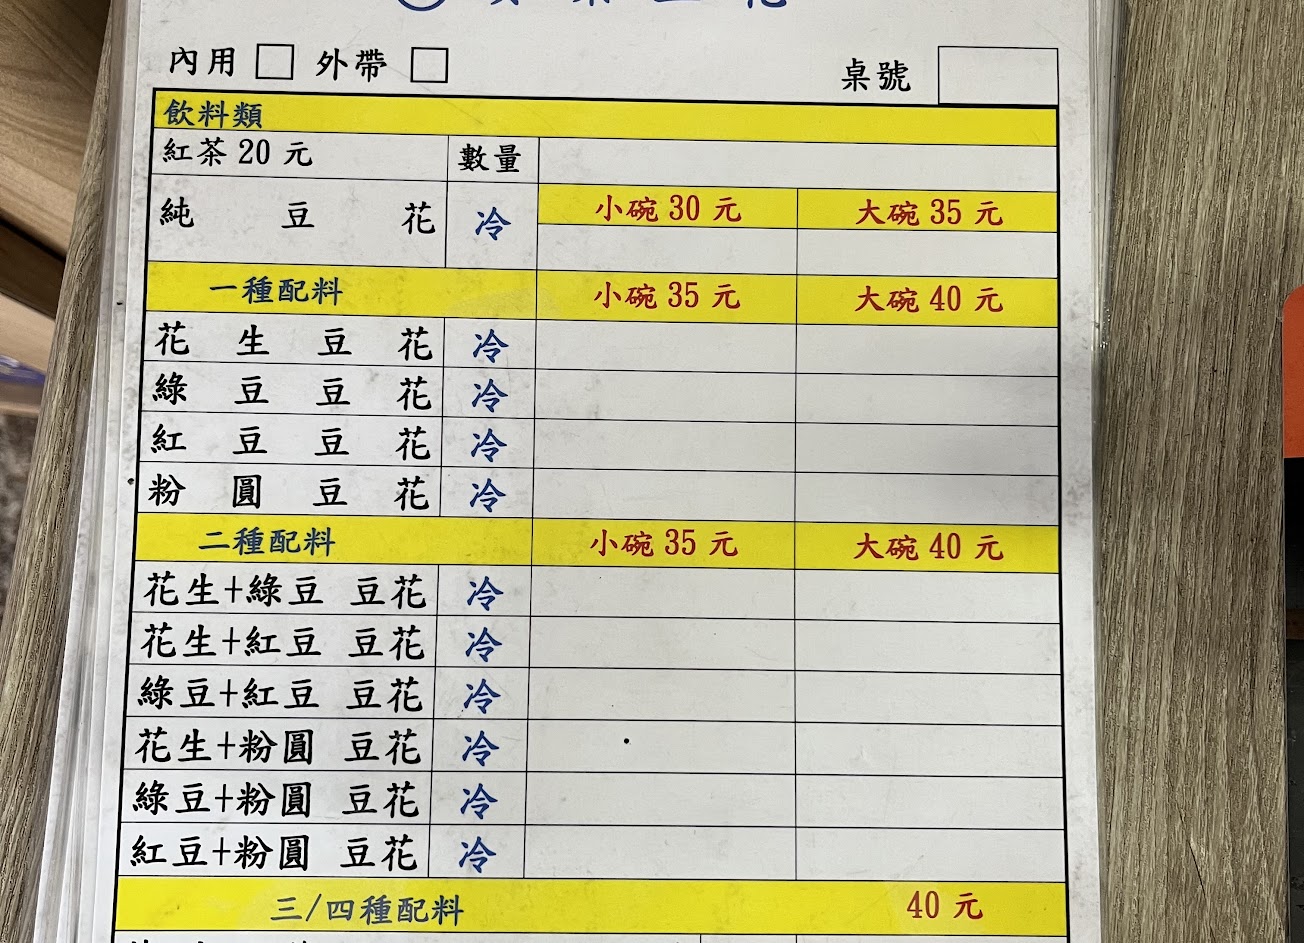 內用 □ 外帶 □ 桌號
飲料類
紅茶 20 元 數量
純豆花 冷 小碗 30 元 大碗 35 元
一種配料 小碗 35 元 大碗 40 元
花生豆花 冷
綠豆豆花 冷
紅豆豆花 冷
粉圓豆花 冷
二種配料 小碗 35 元 大碗 40 元
花生+綠豆 豆花 冷
花生+紅豆 豆花 冷
綠豆+紅豆 豆花 冷
花生+粉圓 豆花 冷
綠豆+粉圓 豆花 冷
紅豆+粉圓 豆花 冷
三/四種配料 40 元